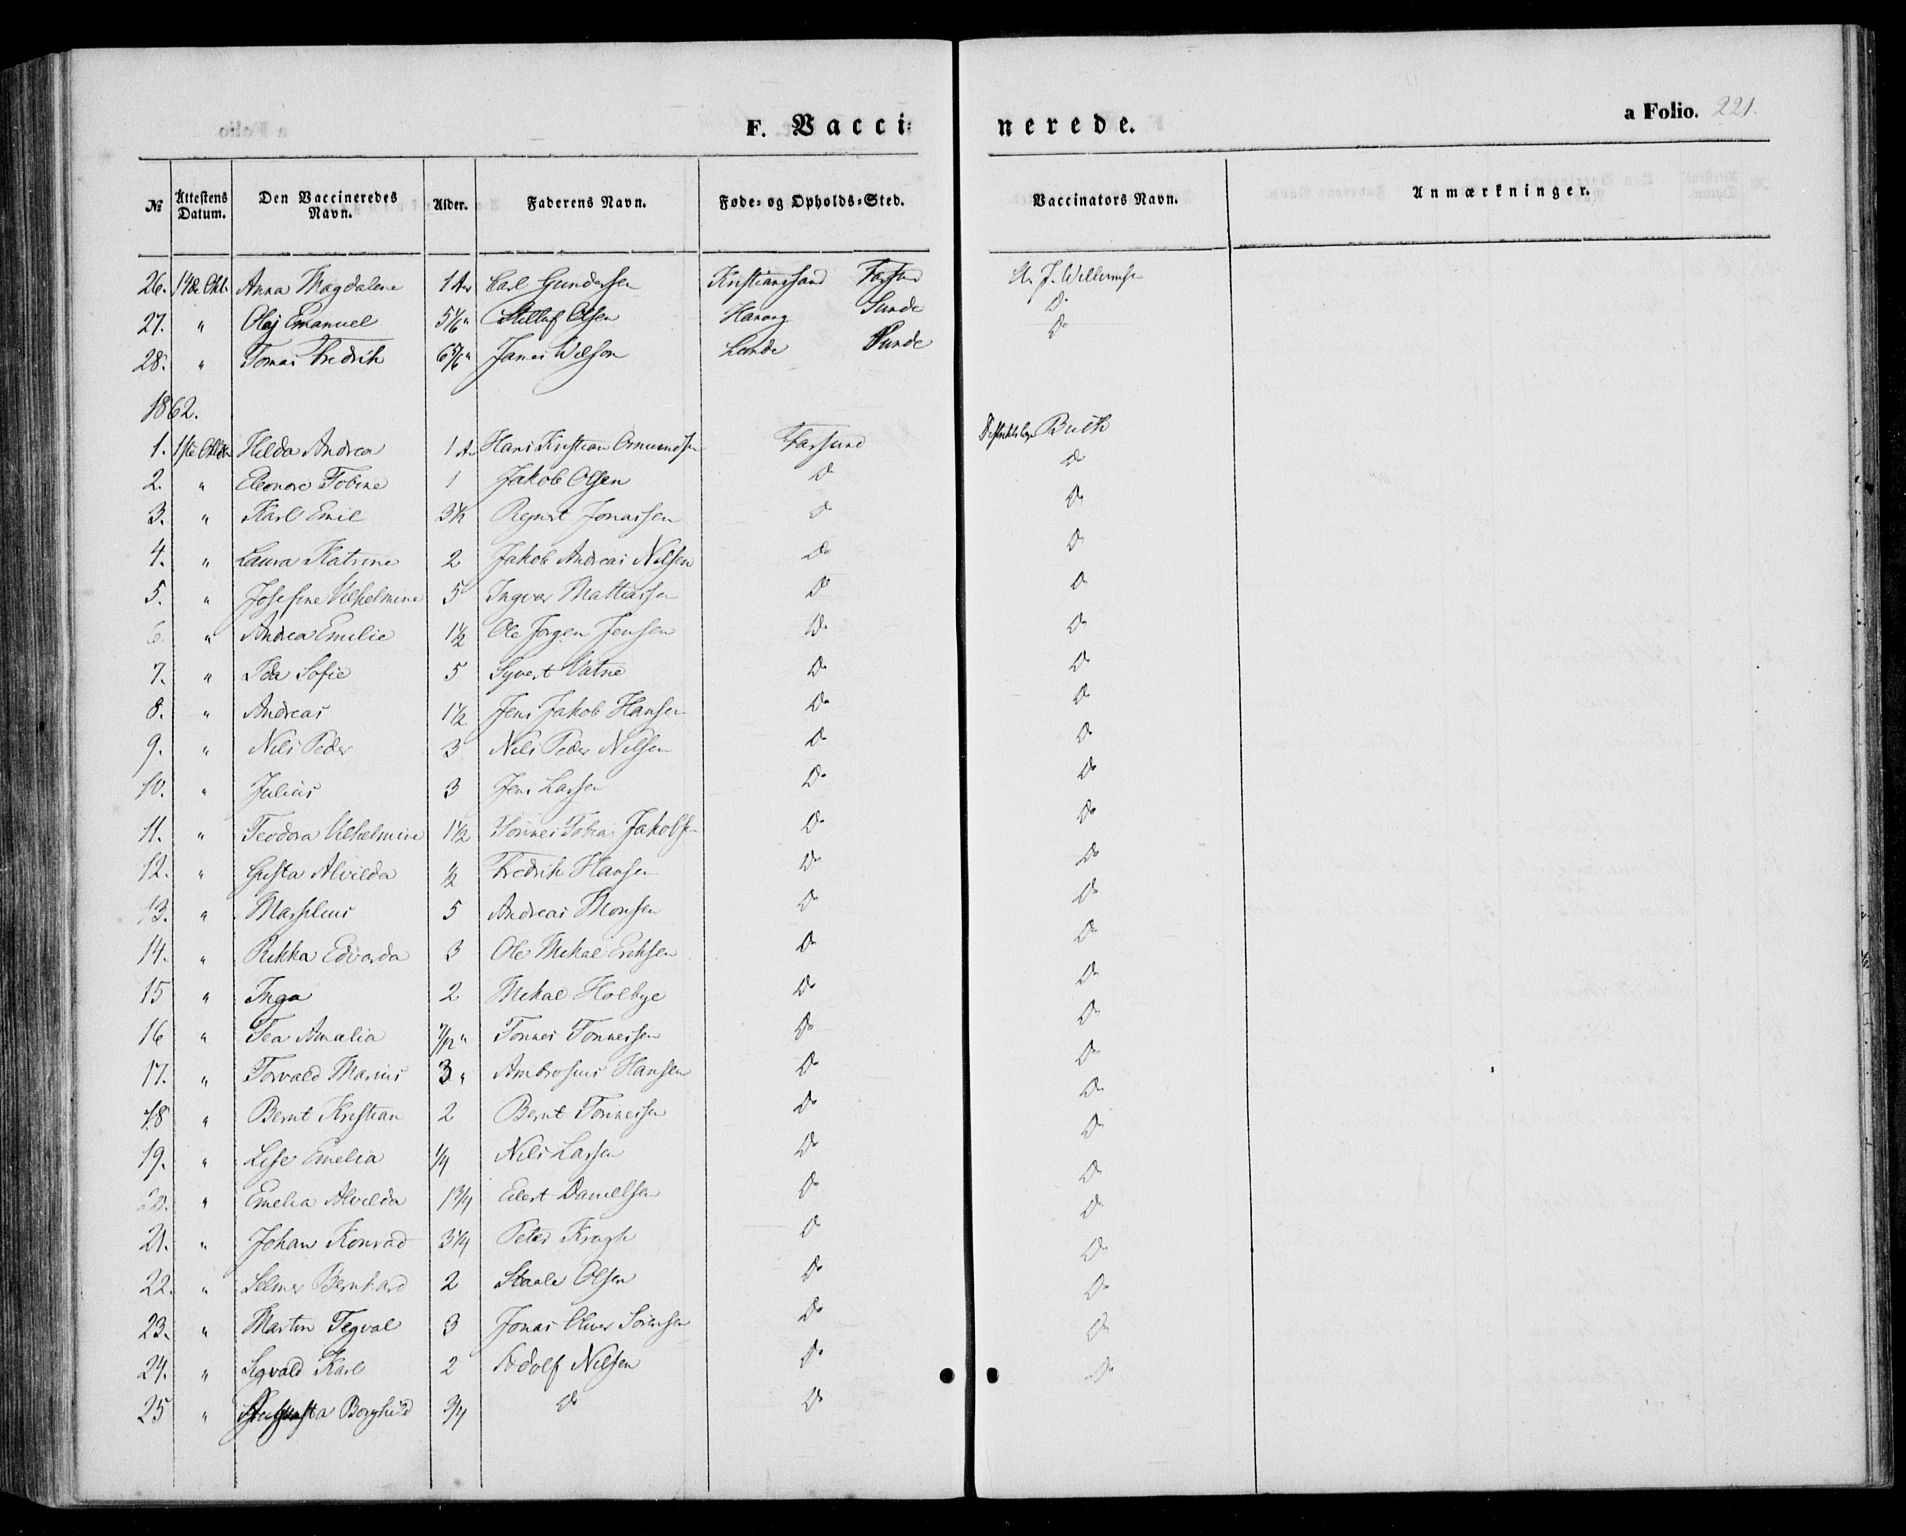 a Folio. 221.
F. Vacci: nerede.
№ Attestens Datum. Den Vaccineredes Navn. Alder. Faderens Navn. Føde- og Opholds-Sted. Vaccinators Navn. Anmærkninger.
26. Anna Magdalene 1 Aar Carl Gundersen Kristianssand Farsund J. Willumsen
27. " Olaj Emanuel 5 1/6 " Olsen Sunde Do
28. " Tomas Fredrik James Wilson Lande Sunde Do
1862.
1. Hilda Andrea 1 Hans Kristian Farsund Buch
2. " Eleonore Tobine 1 Jakob Olsen Do Do
3. " Karl Emil 3 1/2 Jonassen Do Do
4. " Laura Katrine 2 Jakob Andreas Nilsen Do Do
5. " Josefine Vilhelmine 5 Ingvar Mattiassen Do Do
6. " Andrea Emilie 1 1/2 Ole Jørgen Jensen Do Do
7. " Ida Sofie 5 Syvert Vatne Do Do
8. " Andreas 1 1/2 Jens Jakob Hansen Do Do
9. " Nils Peder 3 Nils Peder Nilsen Do Do
10. " Julius 3 Jens Larsen Do Do
11. " Teodora Vilhelmine 1 1/2 Tønnes Tobias Jakobsen Do Do
12. " Gusta Alvilda 1/2 Fredrik Hansen Do Do
13. " Marselius 5 Andreas Monsen Do Do
14. " Rikka Edvarda 3 Ole Mekal Eriksen Do Do
15 " Inga 2 Mekal Holbye Do Do
16 " Tea Amalia 7/12 " Tønnes Tønnessen Do Do
17. " Torvald Marius 3 " Ambrosius Hansen Do Do
18 " Bernt Kristian 2 Bernt Tønnessen Do Do
19. " Lise Emelia 1/4 Nils Larsen Do Do
20. " Emelia Alvilda 1 3/4 Eilert Danielsen Do Do
21. " Johan Konrad 3 1/4 Peter Krogh Do Do
22. " Selmer Bernhard 2 Staale Olsen Do Do
23. " Martin Tegval 3 Jonas Oliver Sørensen Do Do
24. " Sigvald Karl 2 Adolf Nilsen Do Do
25 " Augusta Borghild 3/4 Do Do